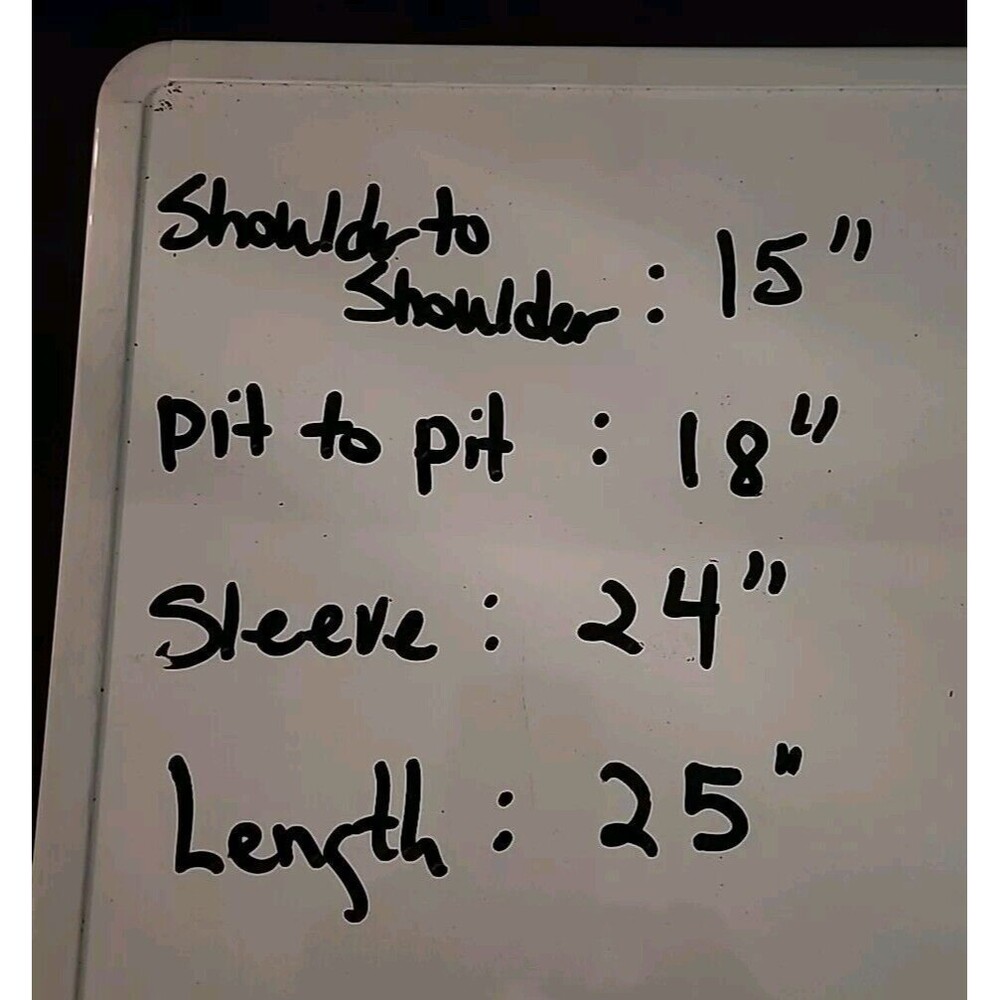 Shoulder to
Shoulder : 15"
Pit to pit : 18"
Sleeve : 24"
Length : 25"